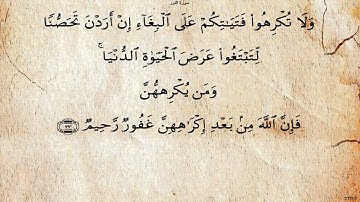 سورة النور
وَلَا تُكْرِهُوا۟ فَتَيَـٰتِكُمْ عَلَى ٱلْبِغَآءِ إِنْ أَرَدْنَ تَحَصُّنًا
لِّتَبْتَغُوا۟ عَرَضَ ٱلْحَيَوٰةِ ٱلدُّنْيَا ۚ
وَمَن يُكْرِههُّنَّ
فَإِنَّ ٱللَّهَ مِنۢ بَعْدِ إِكْرَٰهِهِنَّ غَفُورٌ رَّحِيمٌ ٣٣